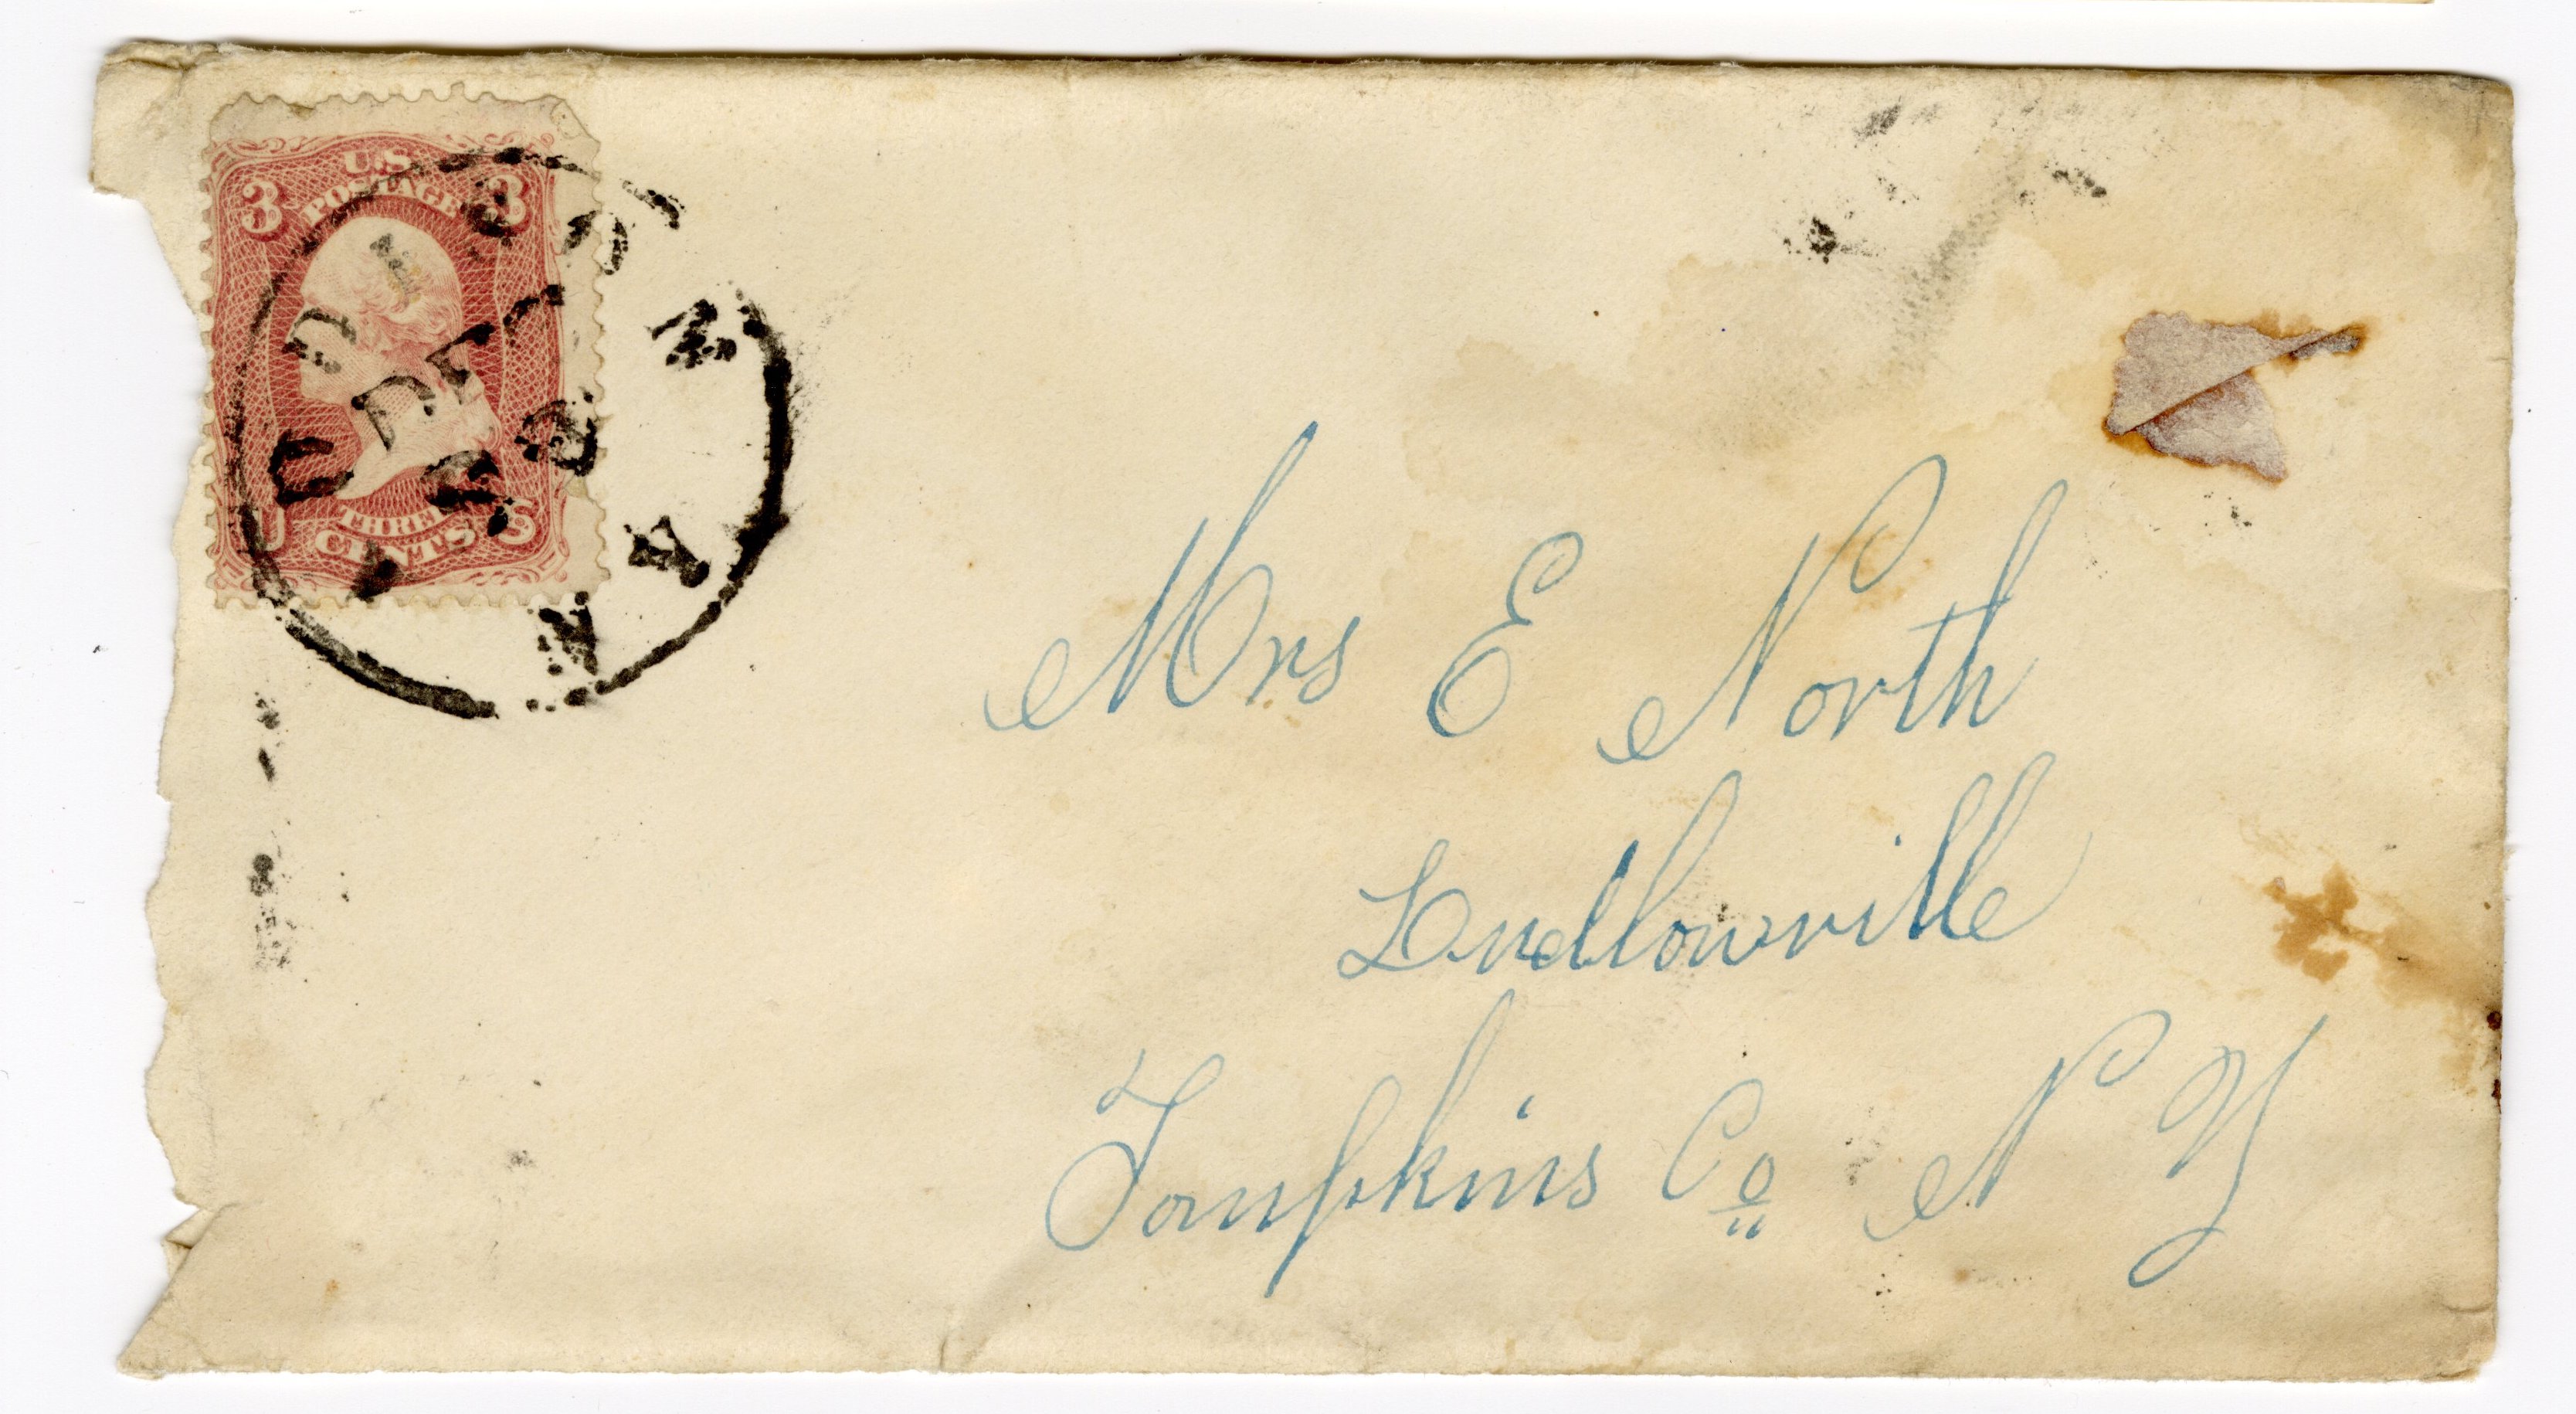 U.S.
POSTAGE
3 3
THREE
CENTS
U S
Mrs E North
Ludlowville
Tompkins Co N Y